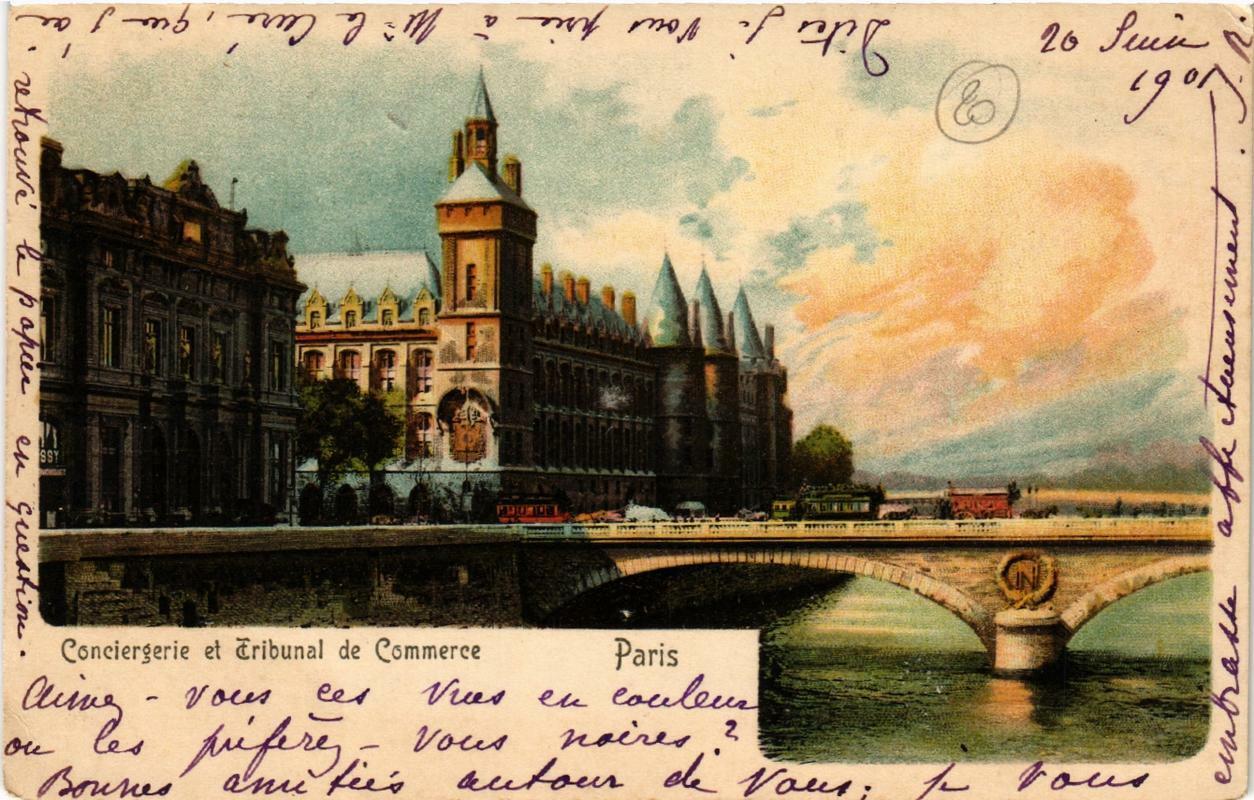 20 Juin
1901
Aimez-vous ces vues en couleur
ou les préférez-vous noires?
Bonnes amitiés autour de Vous; je vous
embrasse affectueusement.
J. R.
Dites je Vous prie à Mr le Curé, que j'ai
retrouvé le papier en question.
Conciergerie et Tribunal de Commerce
Paris
N
SSY